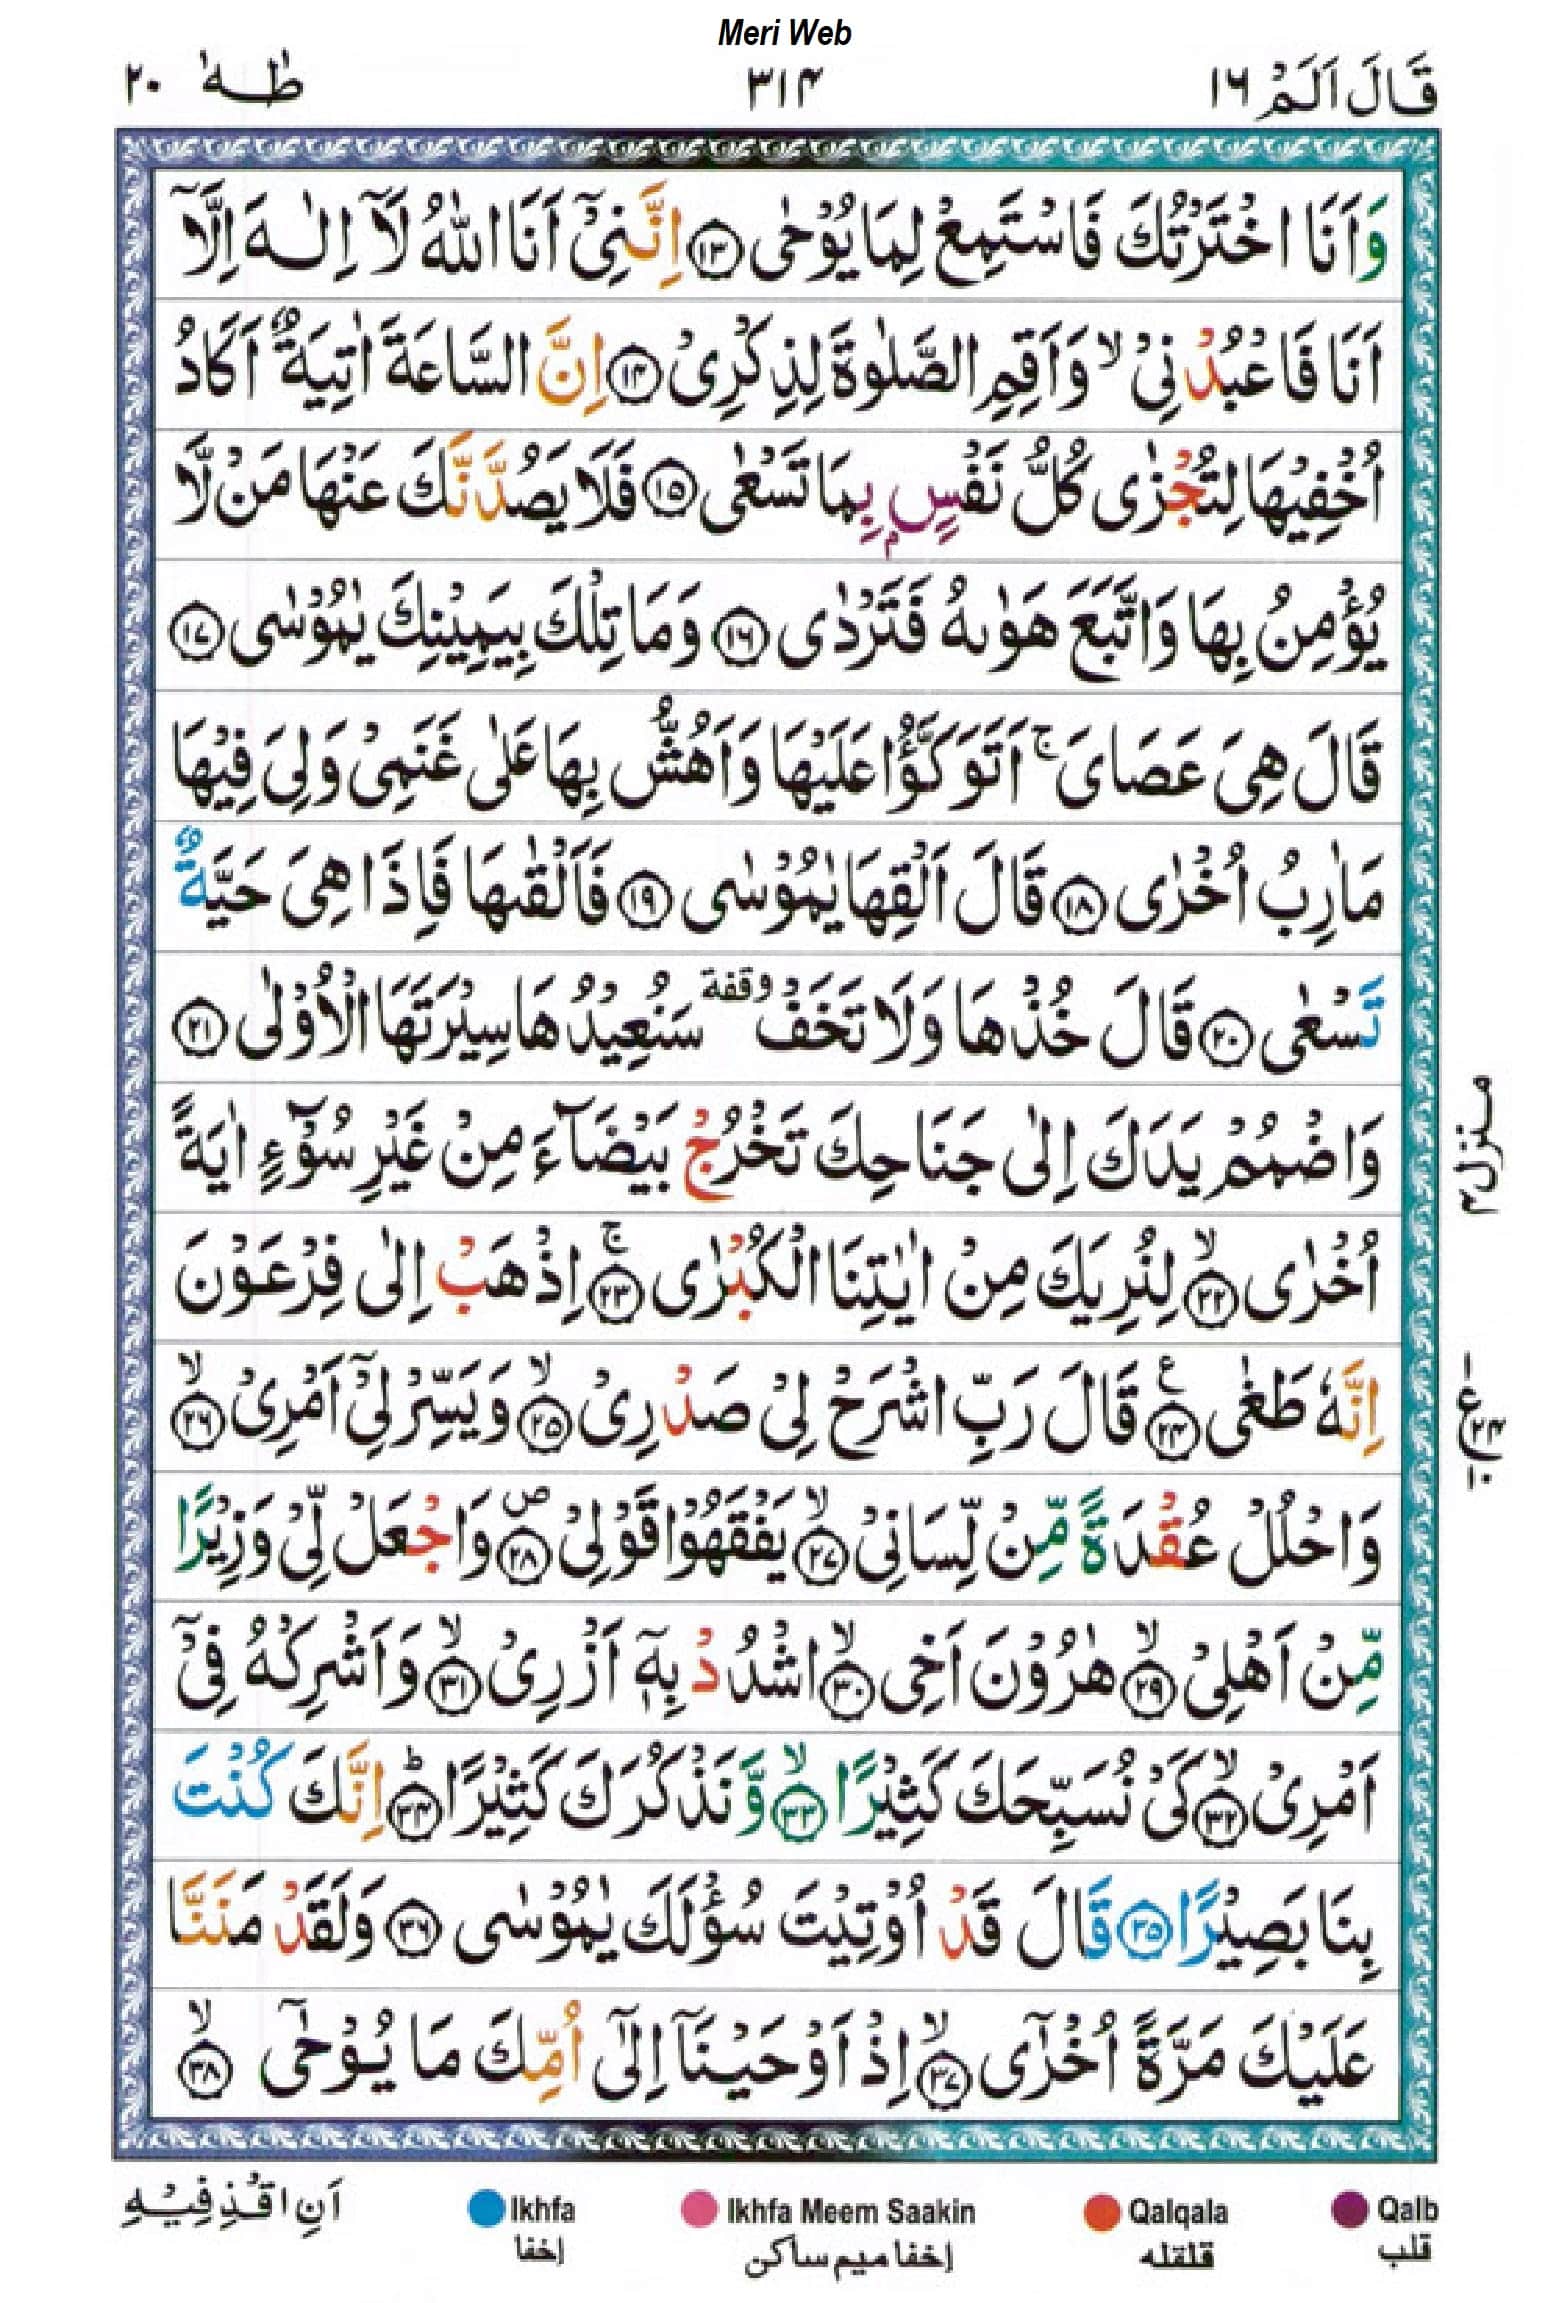 Meri Web
قَالَ اَلَمْ ١٦ ٣١٤ طٰهٰ ٢٠
وَاَنَا اخْتَرْتُكَ فَاسْتَمِعْ لِمَا يُوْحٰى ﴿١٣﴾ اِنَّنِىْۤ اَنَا اللّٰهُ لَاۤ اِلٰـهَ اِلَّاۤ
اَنَا فَاعْبُدْنِىْ ۙ وَاَقِمِ الصَّلٰوةَ لِذِكْرِىْ ﴿١٤﴾ اِنَّ السَّاعَةَ اٰتِيَةٌ اَكَادُ
اُخْفِيْهَا لِتُجْزٰى كُلُّ نَفْسٍۢ بِمَا تَسْعٰى ﴿١٥﴾ فَلَا يَصُدَّنَّكَ عَنْهَا مَنْ لَّا
يُؤْمِنُ بِهَا وَاتَّبَعَ هَوٰٮهُ فَتَرْدٰى ﴿١٦﴾ وَمَا تِلْكَ بِيَمِيْنِكَ يٰمُوْسٰى ﴿١٧﴾
قَالَ هِىَ عَصَاىَ ۚ اَتَوَكَّؤُا عَلَيْهَا وَاَهُشُّ بِهَا عَلٰى غَنَمِىْ وَلِىَ فِيْهَا
مَاٰرِبُ اُخْرٰى ﴿١٨﴾ قَالَ اَلْقِهَا يٰمُوْسٰى ﴿١٩﴾ فَاَلْقٰٮهَا فَاِذَا هِىَ حَيَّةٌ
تَسْعٰى ﴿٢٠﴾ قَالَ خُذْهَا وَلَا تَخَفْ وقفة سَنُعِيْدُهَا سِيْرَتَهَا الْاُوْلٰى ﴿٢١﴾
وَاضْمُمْ يَدَكَ اِلٰى جَنَاحِكَ تَخْرُجْ بَيْضَآءَ مِنْ غَيْرِ سُوْٓءٍ اٰيَةً
اُخْرٰى ۙ﴿٢٢﴾ لِنُرِيَكَ مِنْ اٰيٰتِنَا الْكُبْرٰى ۚ﴿٢٣﴾ اِذْهَبْ اِلٰى فِرْعَوْنَ
اِنَّهٗ طَغٰى ﴿٢٤﴾ ع قَالَ رَبِّ اشْرَحْ لِىْ صَدْرِىْ ۙ﴿٢٥﴾ وَيَسِّرْ لِىْۤ اَمْرِىْ ۙ﴿٢٦﴾
وَاحْلُلْ عُقْدَةً مِّنْ لِّسَانِىْ ۙ﴿٢٧﴾ يَفْقَهُوْا قَوْلِىْ ۖ﴿٢٨﴾ وَاجْعَلْ لِّىْ وَزِيْرًا
مِّنْ اَهْلِىْ ۙ﴿٢٩﴾ هٰرُوْنَ اَخِى ۙ﴿٣٠﴾ اشْدُدْ بِهٖۤ اَزْرِىْ ۙ﴿٣١﴾ وَاَشْرِكْهُ فِىْۤ
اَمْرِىْ ۙ﴿٣٢﴾ كَىْ نُسَبِّحَكَ كَثِيْرًا ۙ﴿٣٣﴾ وَّنَذْكُرَكَ كَثِيْرًا ؕ﴿٣٤﴾ اِنَّكَ كُنْتَ
بِنَا بَصِيْرًا ﴿٣٥﴾ قَالَ قَدْ اُوْتِيْتَ سُؤْلَكَ يٰمُوْسٰى ﴿٣٦﴾ وَلَقَدْ مَنَنَّا
عَلَيْكَ مَرَّةً اُخْرٰٓى ۙ﴿٣٧﴾ اِذْ اَوْحَيْنَاۤ اِلٰٓى اُمِّكَ مَا يُوْحٰٓى ۙ﴿٣٨﴾
منزل٤
اَنِ اقْذِفِيْهِ
Ikhfa Ikhfa Meem Saakin Qalqala Qalb
إخفا إخفا ميم ساكن قلقله قلب